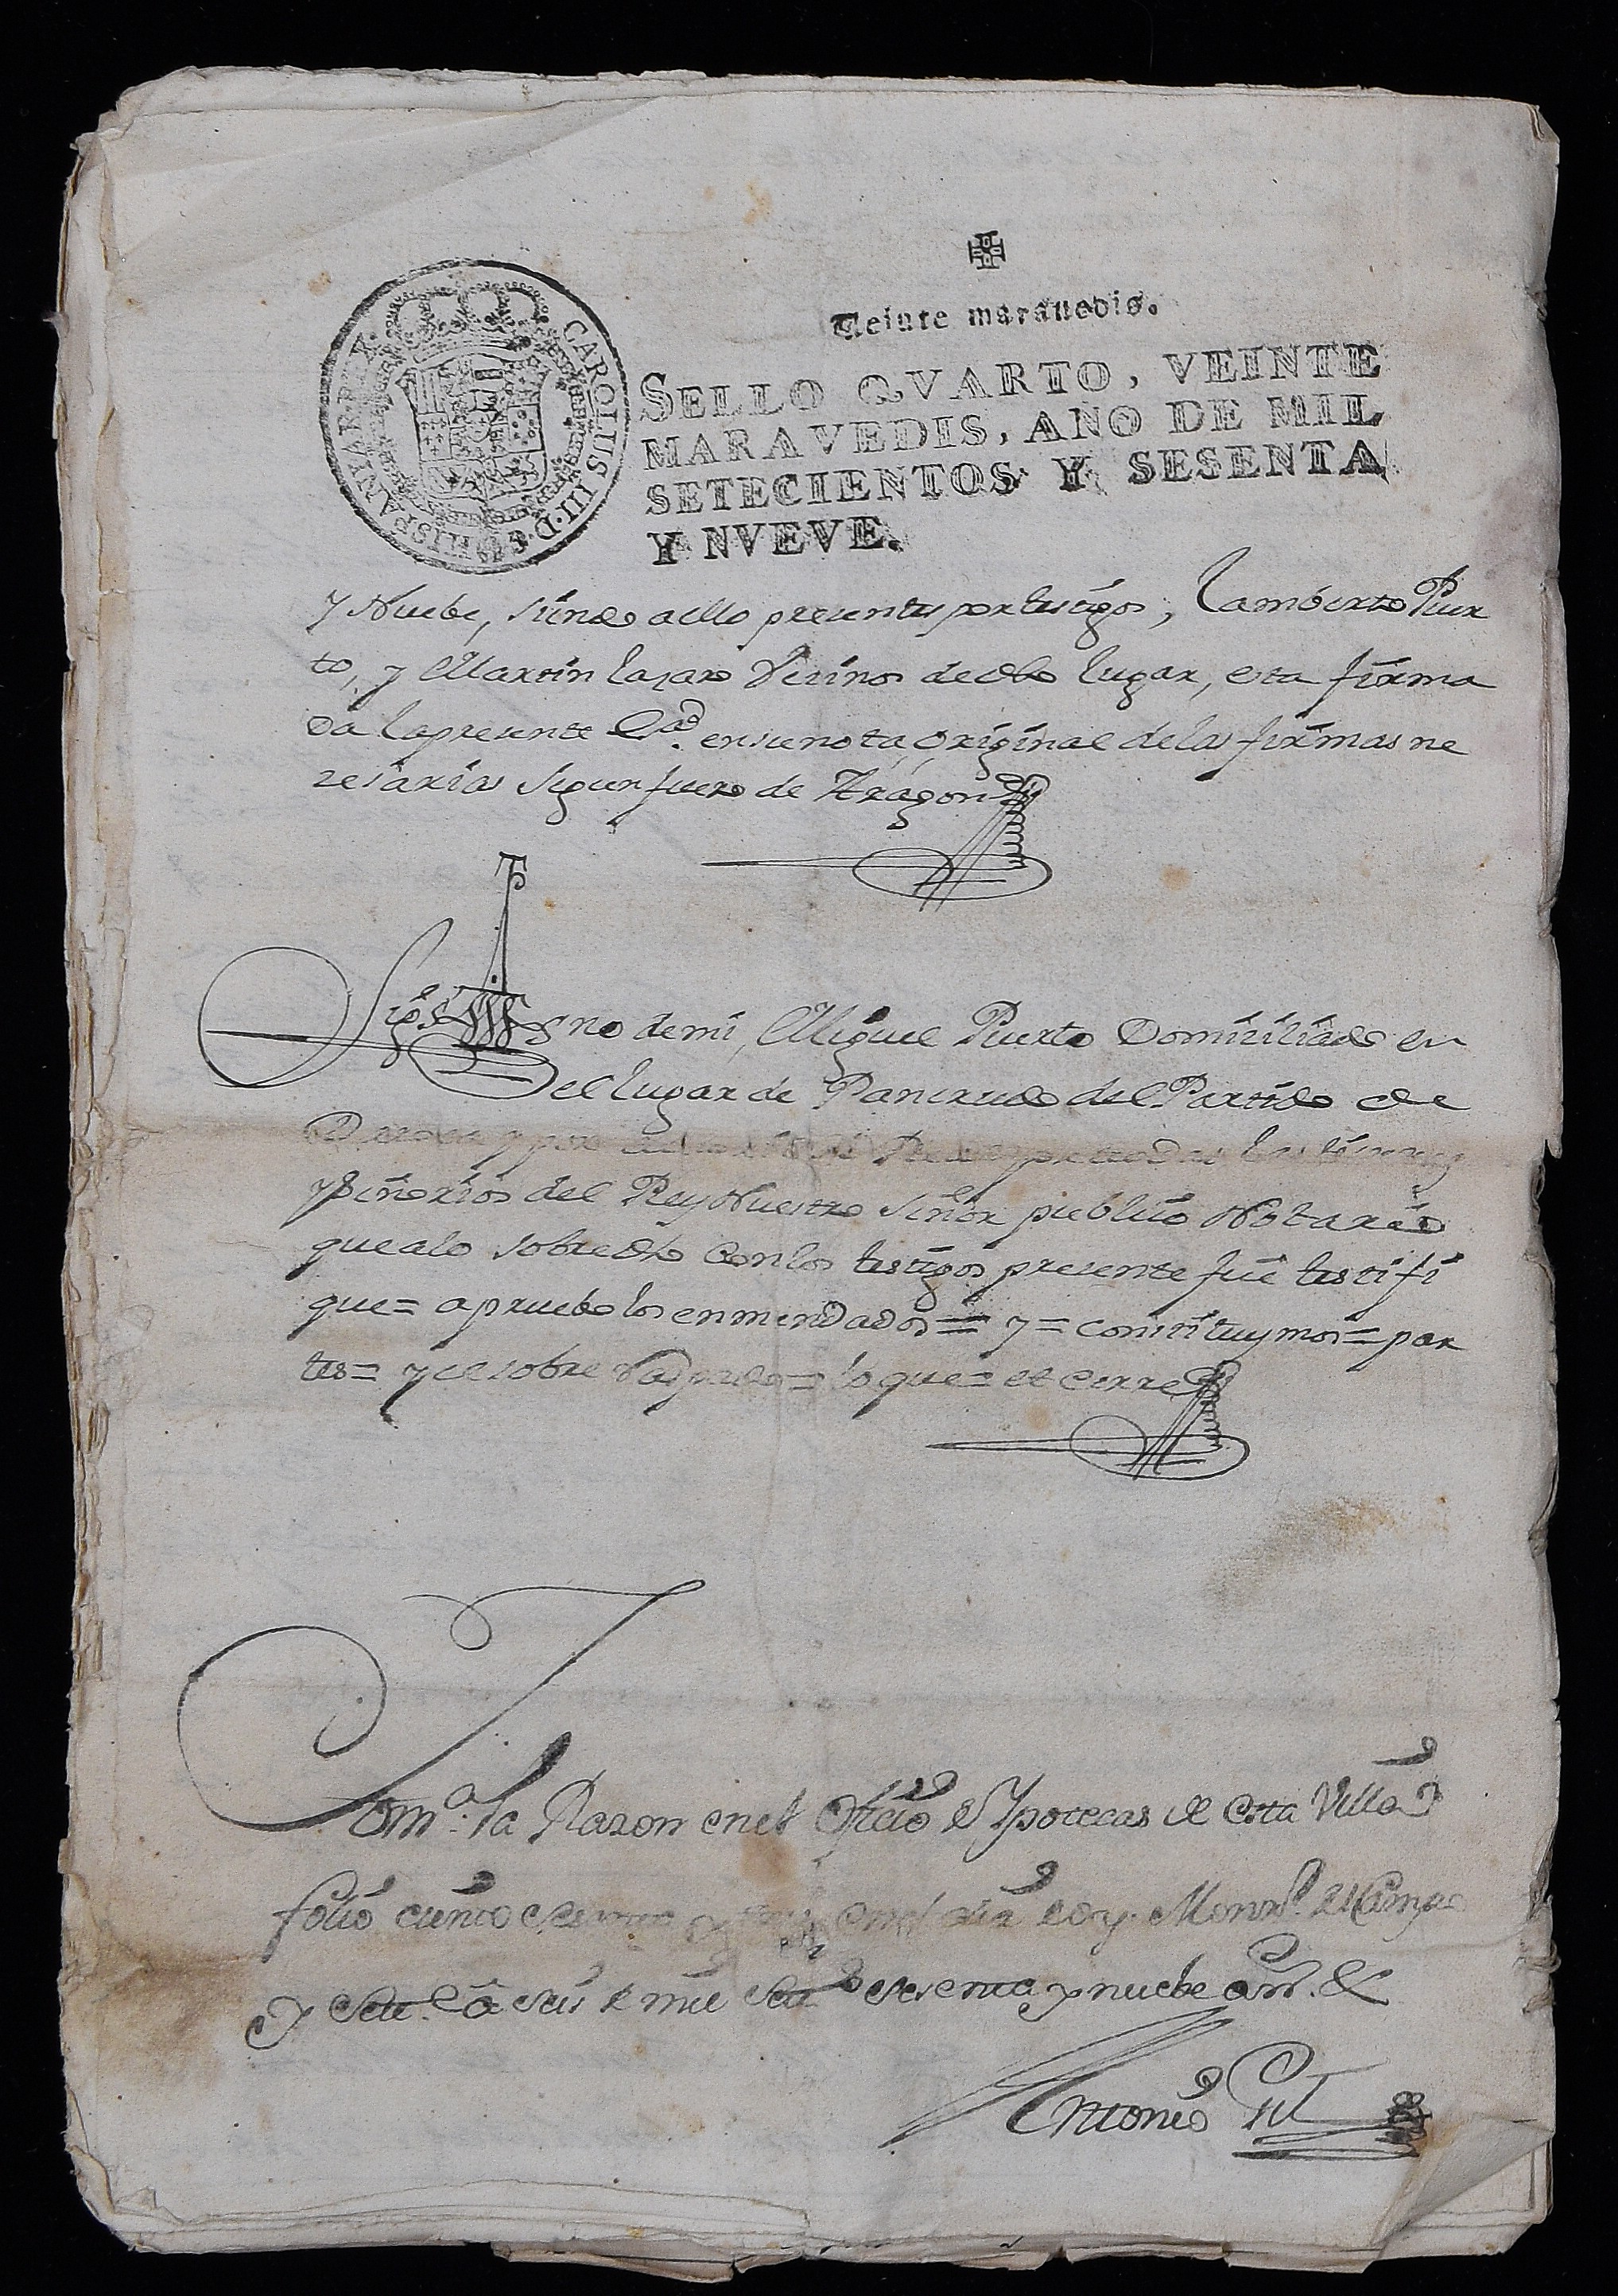 CAROLUS III. D. G. HISPANIAR. REX.
Veinte marauedis.
SELLO QVARTO, VEINTE
MARAVEDIS, AÑO DE MIL
SETECIENTOS Y SESENTA
Y NVEVE.
y Nuebe, siendo a ello presentes por testigos, Lamberto Puer
to, y Martin Lazaro Vecinos de dho lugar, esta firma
da la presente en su nota, original de las firmas ne
zesarias segun fuero de Aragon
Sig no de mi, Miguel Puerto Domiziliado en
el lugar de Pancrudo del Partido de
Daroca y por Real por todas las tierras
y Señorios del Rey Nuestro Señor publico Notario
que a lo sobre dho con los testigos presente fui testifi
que= apruebo los enmendados= y= constituymos= par
tes= y el sobre = lo que= et cerre
Tom.a la Razon en el Oficio de Ypotecas de esta Villa
folio ciento en el dia de oy. Monrl. del Campo
y Sete. a seis de mil Setos sesenta y nuebe an. &
Antonio Gil